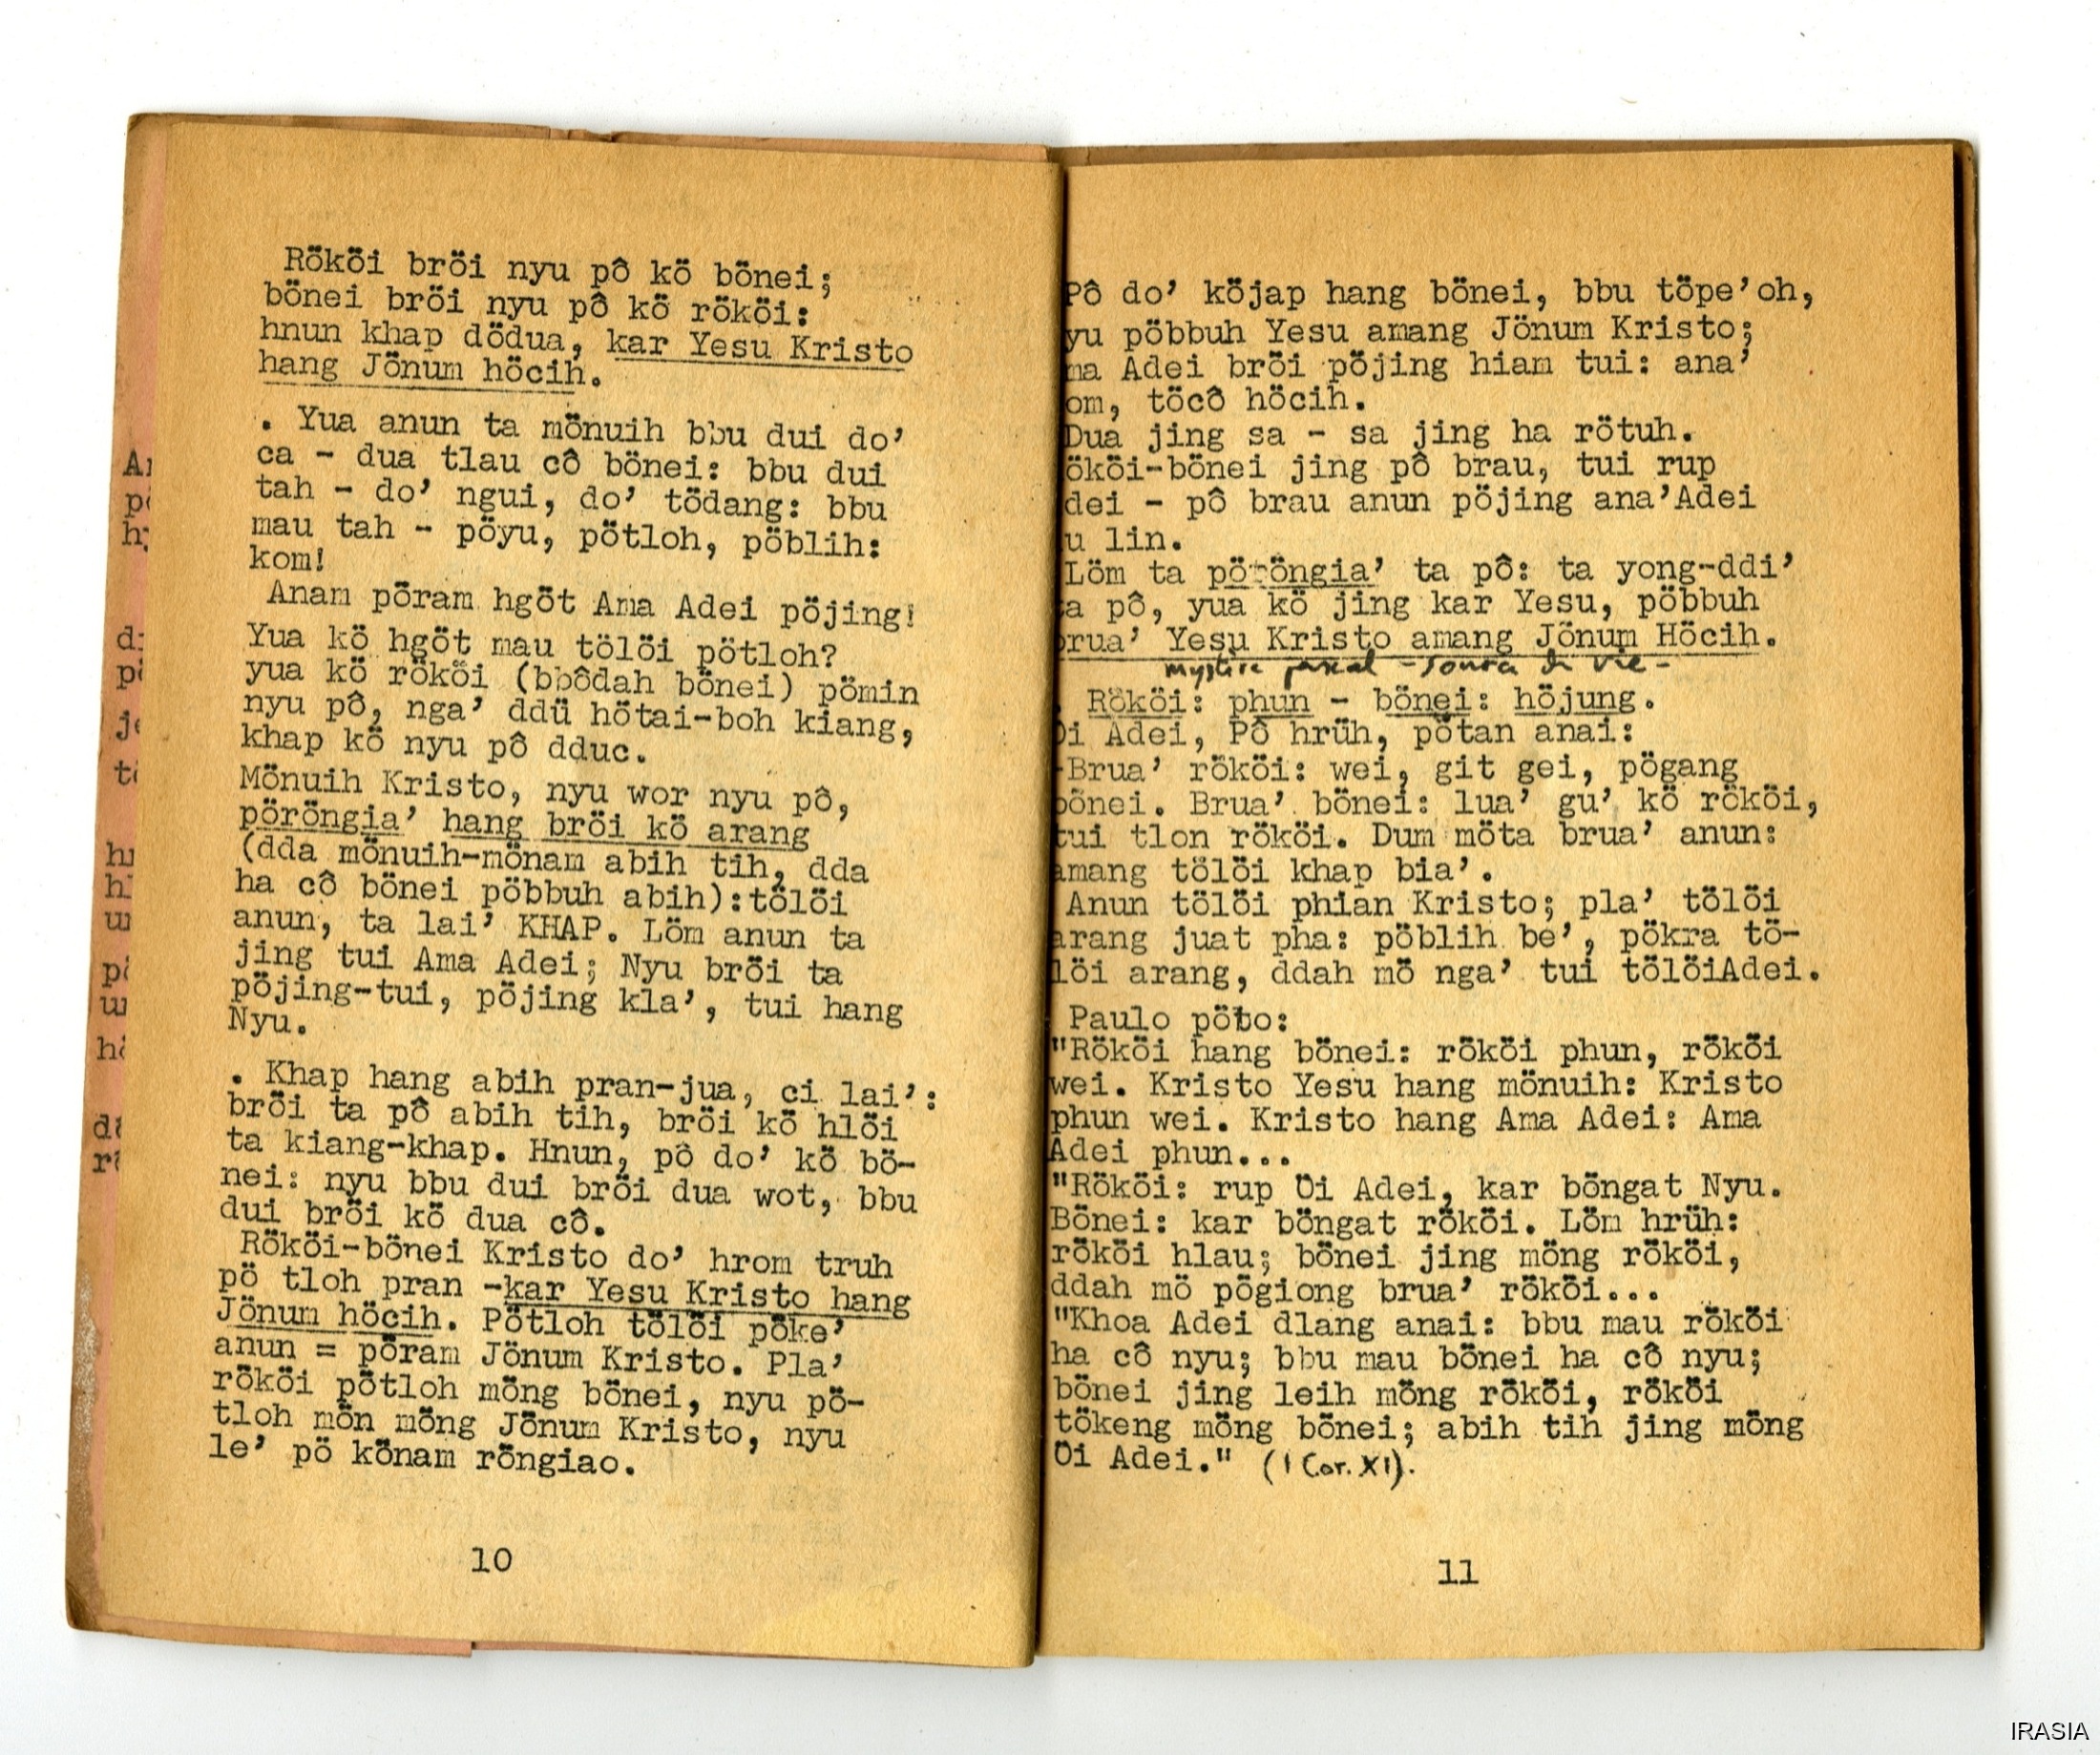 Rököi bröi nyu pô kö bönei;
bönei bröi nyu pô kö rököi:
hnun khap dödua, kar Yesu Kristo
hang Jönum höcih.
. Yua anun ta mönuih bbu dui do’
ca - dua tlau cô bönei: bbu dui
tah - do’ ngui, do’ tödang: bbu
mau tah - pöyu, pötloh, pöblih:
kom!
Anam pöram hgöt Ama Adei pöjing!
Yua kö hgöt mau tölöi pötloh?
yua kö rököi (bbôdah bönei) pömin
nyu pô, nga’ ddü hötai-boh kiang,
khap kö nyu pô dduc.
Mönuih Kristo, nyu wor nyu pô,
pöröngia’ hang bröi kö arang
(dda mönuih-mönam abih tih, dda
ha cô bönei pöbbuh abih):tölöi
anun, ta lai’ KHAP. Löm anun ta
jing tui Ama Adei; Nyu bröi ta
pöjing-tui, pöjing kla’, tui hang
Nyu.
. Khap hang abih pran-jua, ci lai’:
bröi ta pô abih tih, bröi kö hlöi
ta kiang-khap. Hnun, pô do’ kö bö-
nei: nyu bbu dui bröi dua wot, bbu
dui bröi kö dua cô.
Rököi-bönei Kristo do’ hrom truh
pö tloh pran -kar Yesu Kristo hang
Jönum höcih. Pötloh tölöi pöke’
anun = pöram Jönum Kristo. Pla’
rököi pötloh möng bönei, nyu pö-
tloh mön möng Jönum Kristo, nyu
le’ pö könam röngiao.
10
Pô do’ köjap hang bönei, bbu töpe’oh,
yu pöbbuh Yesu amang Jönum Kristo;
ma Adei bröi pöjing hiam tui: ana’
om, töcô höcih.
Dua jing sa - sa jing ha rötuh.
ököi-bönei jing pô brau, tui rup
dei - pô brau anun pöjing ana’Adei
u lin.
Löm ta pöröngia’ ta pô: ta yong-ddi’
a pô, yua kö jing kar Yesu, pöbbuh
brua’ Yesu Kristo amang Jönum Höcih.
mystère pascal - source de vie -
. Rököi: phun - bönei: höjung.
Oi Adei, Pô hrüh, pötan anai:
-Brua’ rököi: wei, git gei, pögang
bönei. Brua’ bönei: lua’ gu’ kö rököi,
tui tlon rököi. Dum möta brua’ anun:
amang tölöi khap bia’.
Anun tölöi phian Kristo; pla’ tölöi
arang juat pha: pöblih be’, pökra tö-
löi arang, ddah mö nga’ tui tölöiAdei.
Paulo pöto:
"Rököi hang bönei: rököi phun, rököi
wei. Kristo Yesu hang mönuih: Kristo
phun wei. Kristo hang Ama Adei: Ama
Adei phun...
"Rököi: rup Oi Adei, kar böngat Nyu.
Bönei: kar böngat rököi. Löm hrüh:
rököi hlau; bönei jing möng rököi,
ddah mö pögiong brua’ rököi...
"Khoa Adei dlang anai: bbu mau rököi
ha cô nyu; bbu mau bönei ha cô nyu;
bönei jing leih möng rököi, rököi
tökeng möng bönei; abih tih jing möng
Oi Adei." (1 Cor. XI).
11
IRASIA